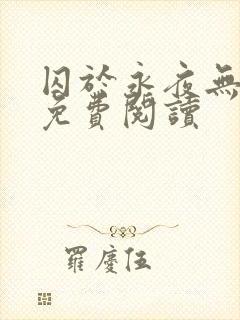 囚於永夜無
免費閱讀
羅慶伍